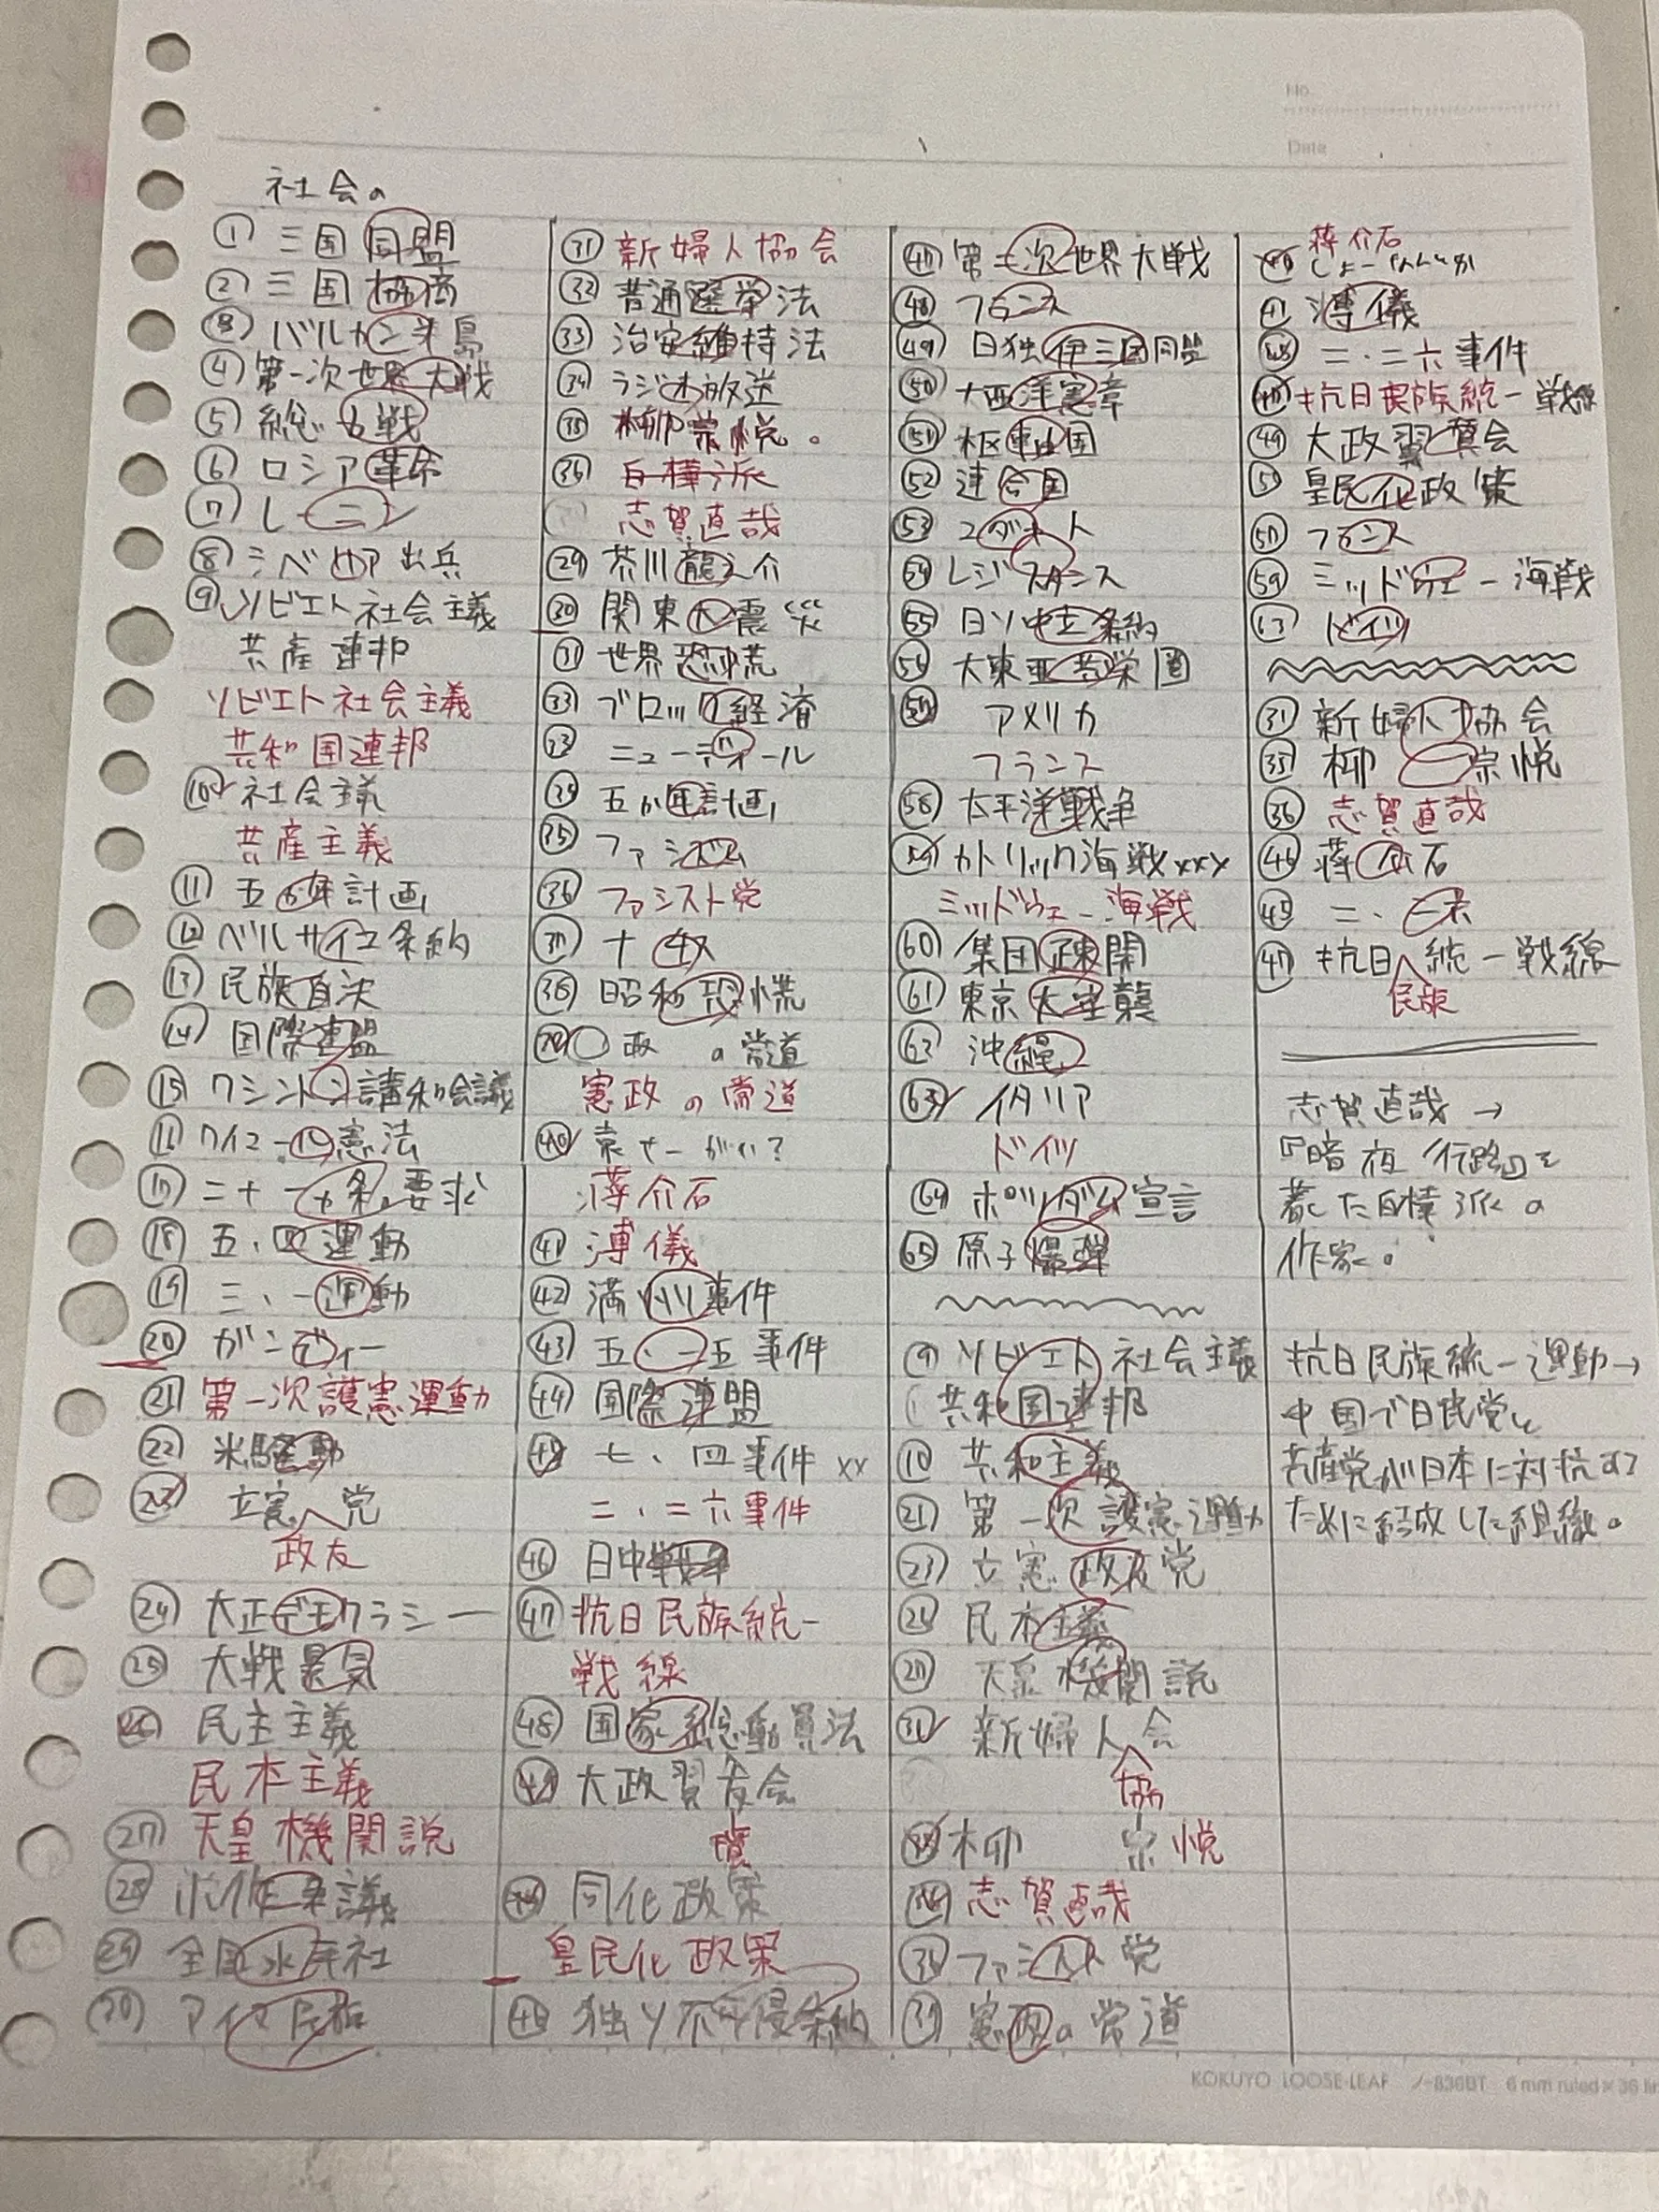 No.
Date
社会の
① 三国同盟
② 三国協商
③ バルカン半島
④ 第一次世界大戦
⑤ 総力戦
⑥ ロシア革命
⑦ レーニン
⑧ シベリア出兵
⑨ ソビエト社会主義
共産連邦
ソビエト社会主義
共和国連邦
⑩ 社会主義
共産主義
⑪ 五か年計画
⑫ ベルサイユ条約
⑬ 民族自決
⑭ 国際連盟
⑮ ワシントン講和会議
⑯ ワイマール憲法
⑰ 二十一か条の要求
⑱ 五・四運動
⑲ 三・一運動
⑳ ガンディー
㉑ 第一次護憲運動
㉒ 米騒動
㉓ 立憲党
政友
㉔ 大正デモクラシー
㉕ 大戦景気
㉖ 民主主義
民本主義
㉗ 天皇機関説
㉘ 小作争議
㉙ 全国水平社
㉚ アイヌ民族
㉛ 新婦人協会
㉜ 普通選挙法
㉝ 治安維持法
㉞ ラジオ放送
㉟ 柳宗悦。
㊱ 白樺派
志賀直哉
㉙ 芥川龍之介
㉚ 関東大震災
㉛ 世界恐慌
㉝ ブロック経済
㉝ ニューディール
㉞ 五か年計画
㉟ ファシズム
㊱ ファシスト党
㊲ ナチス
㊳ 昭和恐慌
㊴ 〇政 の常道
憲政の常道
㊵ 袁せーがい?
蒋介石
㊶ 溥儀
㊷ 満州事件
㊸ 五・一五事件
㊹ 国際連盟
㊺ 七・四事件 xx
二・二六事件
㊻ 日中戦争
㊼ 抗日民族統一
戦線
㊽ 国家総動員法
㊾ 大政習会
同化政策
皇民化政策
独ソ不可侵条約
第二次世界大戦
㊽ フランス
㊾ 日独伊三国同盟
㊿ 大西洋憲章
(51) 枢軸国
(52) 連合国
(53) ユダヤ人
(54) レジスタンス
(55) 日ソ中立条約
(56) 大東亜共栄圏
アメリカ
フランス
(58) 太平洋戦争
カトリック海戦xxx
ミッドウェー海戦
(60) 集団疎開
(61) 東京大空襲
沖縄
(63) イタリア
ドイツ
(64) ポツダム宣言
(65) 原子爆弾
⑨ ソビエト社会主義
共和国連邦
⑩ 共和主義
㉑ 第一次護憲運動
㉓ 立憲政友党
民本主義
天皇機関説
㉛ 新婦人会
協
柳 宗悦
志賀直哉
ファシスト党
憲政の常道
蒋介石
㊶ 溥儀
二・二六事件
抗日民族統一戦線
㊾ 大政翼賛会
皇民化政策
フランス
(59) ミッドウェー海戦
ドイツ
㉛ 新婦人協会
㉟ 柳 宗悦
㊱ 志賀直哉
蒋介石
㊺ 二・二六
㊼ 抗日統一戦線
民族
志賀直哉→
『暗夜行路』を
著した白樺派の
作家。
抗日民族統一運動→
中国で日民党と
共産党が日本に対抗する
ために結成した組織。
KOKUYO LOOSE-LEAF ノ-836BT 6 mm ruled×36 lin